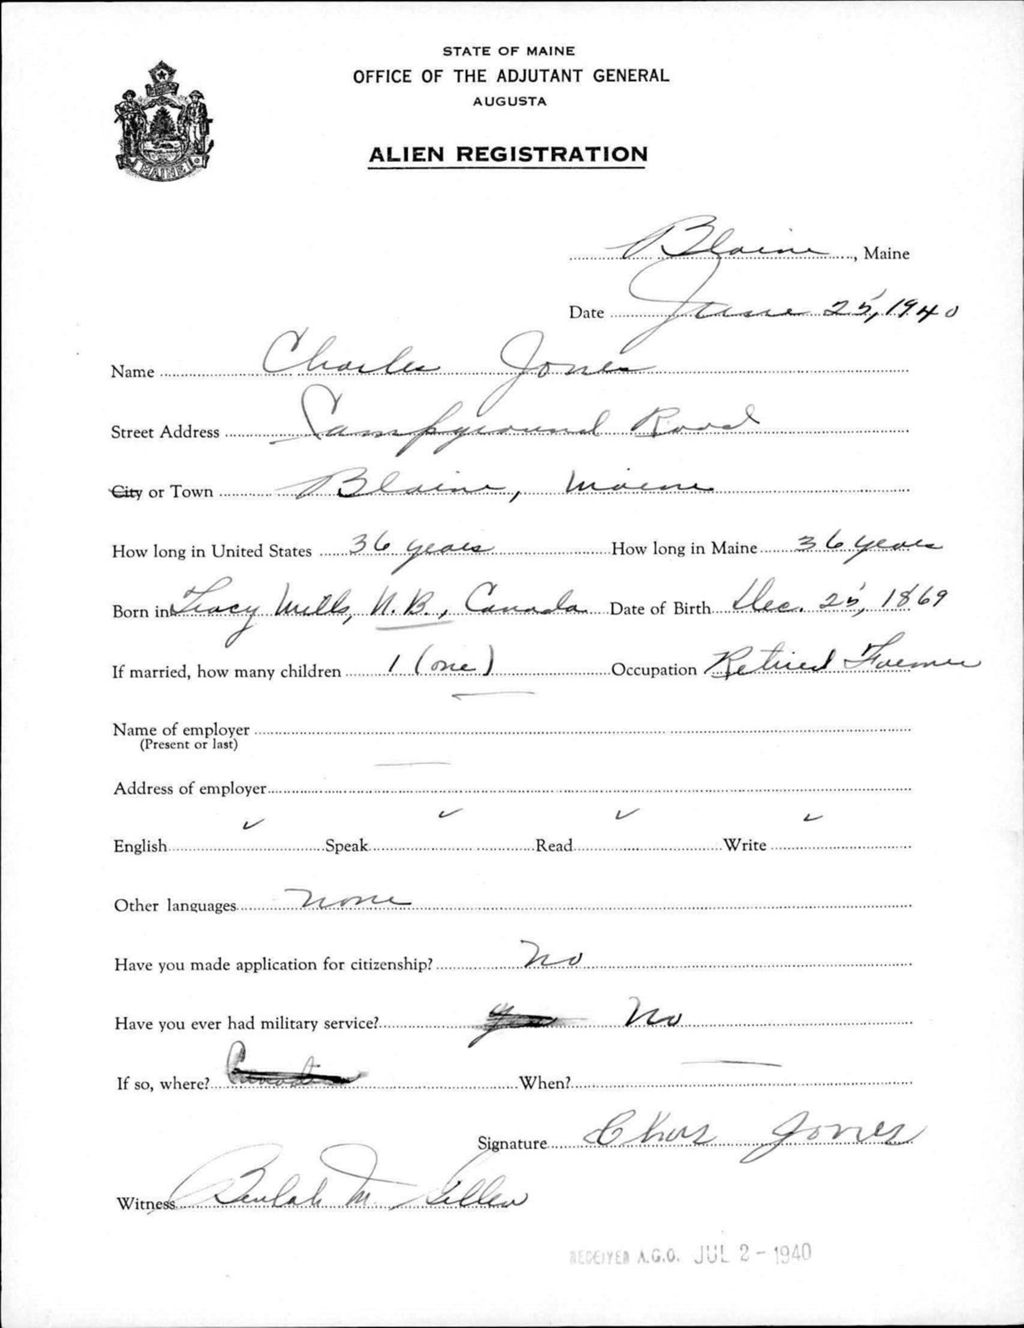 STATE OF MAINE
OFFICE OF THE ADJUTANT GENERAL
AUGUSTA
ALIEN REGISTRATION
MAINE
Blaine, Maine
Date June 25, 1940
Name Charles Jones
Street Address Campground Road
City or Town Blaine, Maine
How long in United States 36 years How long in Maine 36 years
Born in Tracy Mills, N.B., Canada Date of Birth Dec. 25, 1869
If married, how many children 1 (one) Occupation Retired Farmer
Name of employer
(Present or last)
Address of employer
English ✓ Speak ✓ Read ✓ Write ✓
Other languages none
Have you made application for citizenship? No
Have you ever had military service? Yes No
If so, where? When? —
Signature Chas Jones
Witness Beulah M.
RECEIVED A.G.O. JUL 2 - 1940